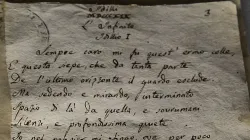 Idilli
L'Infinito
Idillio I
Sempre caro mi fu quest'ermo colle,
E questa siepe, che da tanta parte
De l'ultimo orizzonte il guardo esclude.
Ma sedendo e mirando, interminato
Spazio di là da quella, e sovrumani
Silenzi, e profondissima quiete
Io nel pensier mi fingo, ove per poco